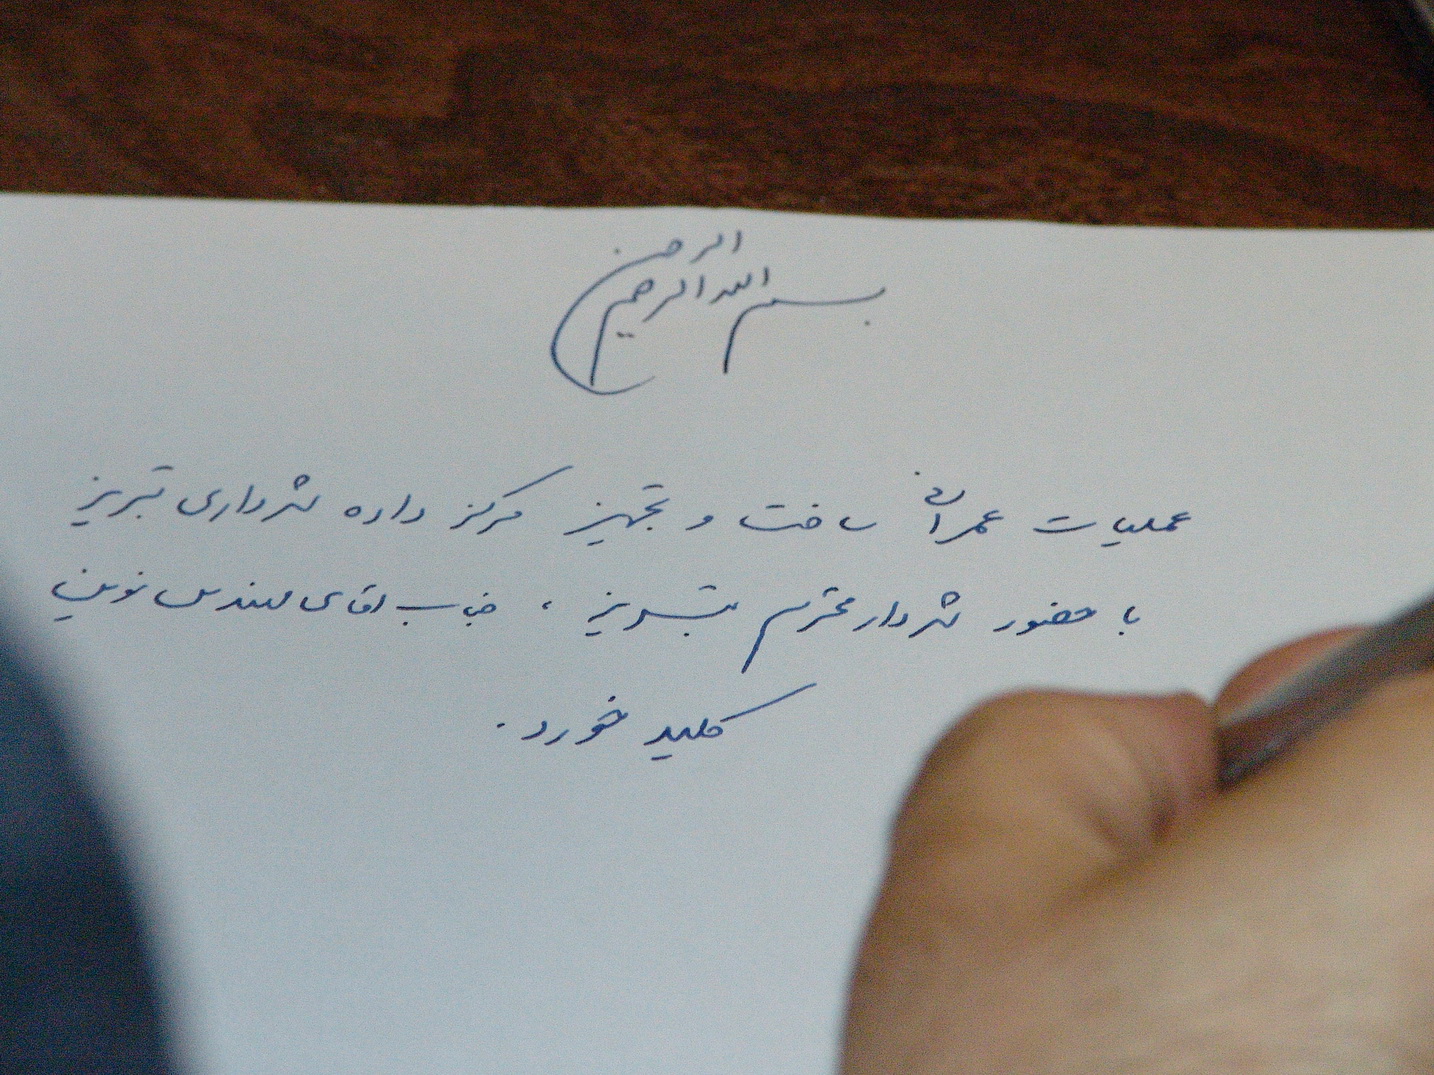 بسم الله الرحمن الرحیم
عملیات عمرانی ساخت و تجهیز مرکز داده شهرداری تبریز
با حضور شهردار محترم تبریز ، جناب اقای مهندس نوین
کلید خورد .